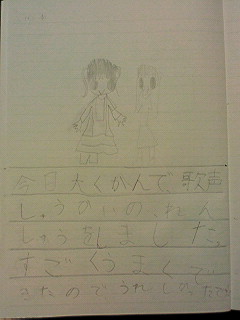 今日大くかんで、歌声
しゅうかいの、れん
しゅうをしました。
すごくうまくで
きたのでうれしかったです